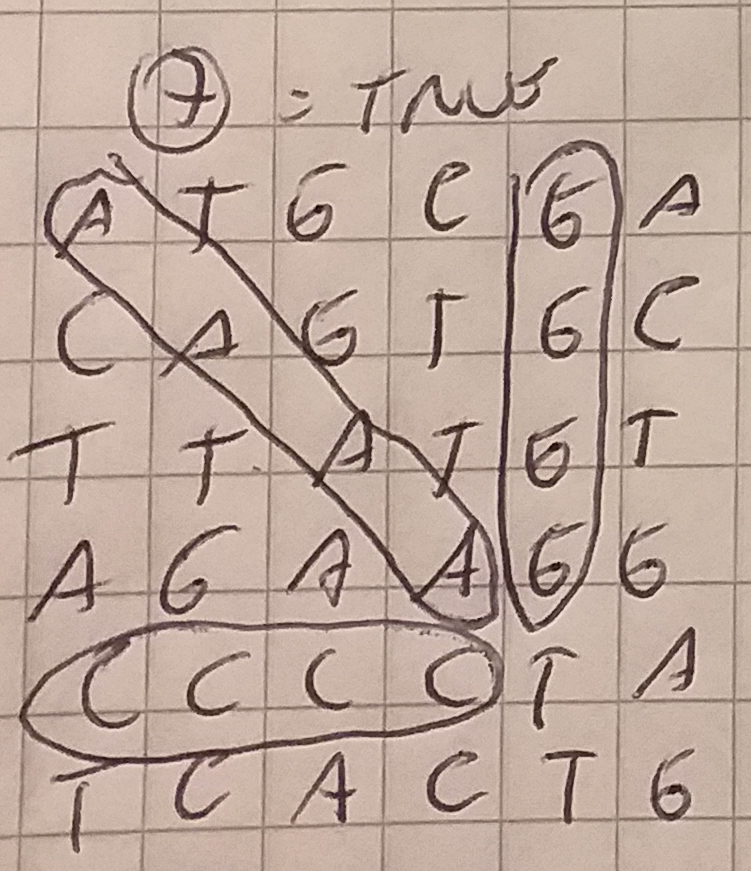 7 = TRUE
A T G C G A
C A G T G C
T T A T G T
A G A A G G
C C C C T A
T C A C T G